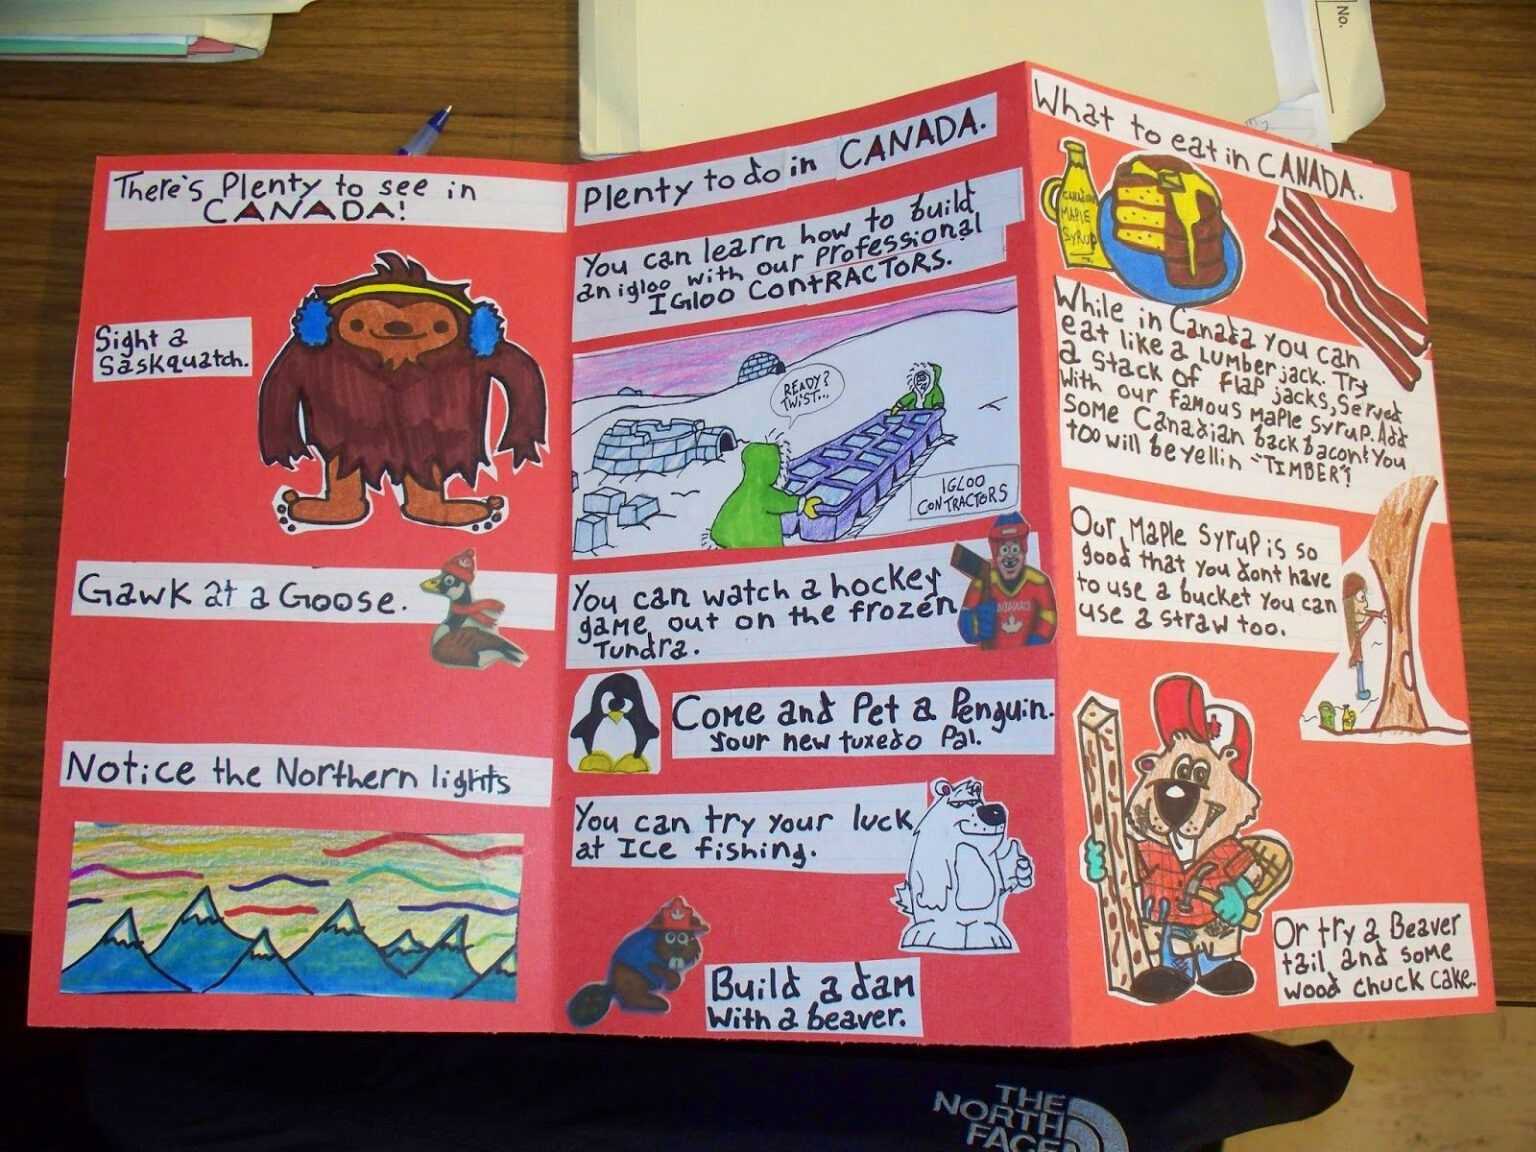 No.
There's Plenty to see in
CANADA!
Sight a
Saskquatch.
Gawk at a Goose.
Notice the Northern lights
Plenty to do in CANADA.
You can learn how to build
an igloo with our Professional
IGLOO CONTRACTORS.
READY?
TWIST...
IGLOO
CONTRACTORS
You can watch a hockey
game out on the frozen
Tundra.
Come and Pet a Penguin.
Your new tuxedo Pal.
You can try your luck
at Ice fishing.
Build a dam
with a beaver.
What to eat in CANADA.
CANADIAN
MAPLE
SYRUP
While in Canada you can
eat like a Lumber jack. Try
a stack of flap jacks, served
with our famous maple syrup. Add
some Canadian back bacon & You
too will be yellin "TIMBER"!
Our Maple Syrup is so
good that you dont have
to use a bucket you can
use a straw too.
Or try a Beaver
tail and some
wood chuck cake.
THE
NORTH
FACE